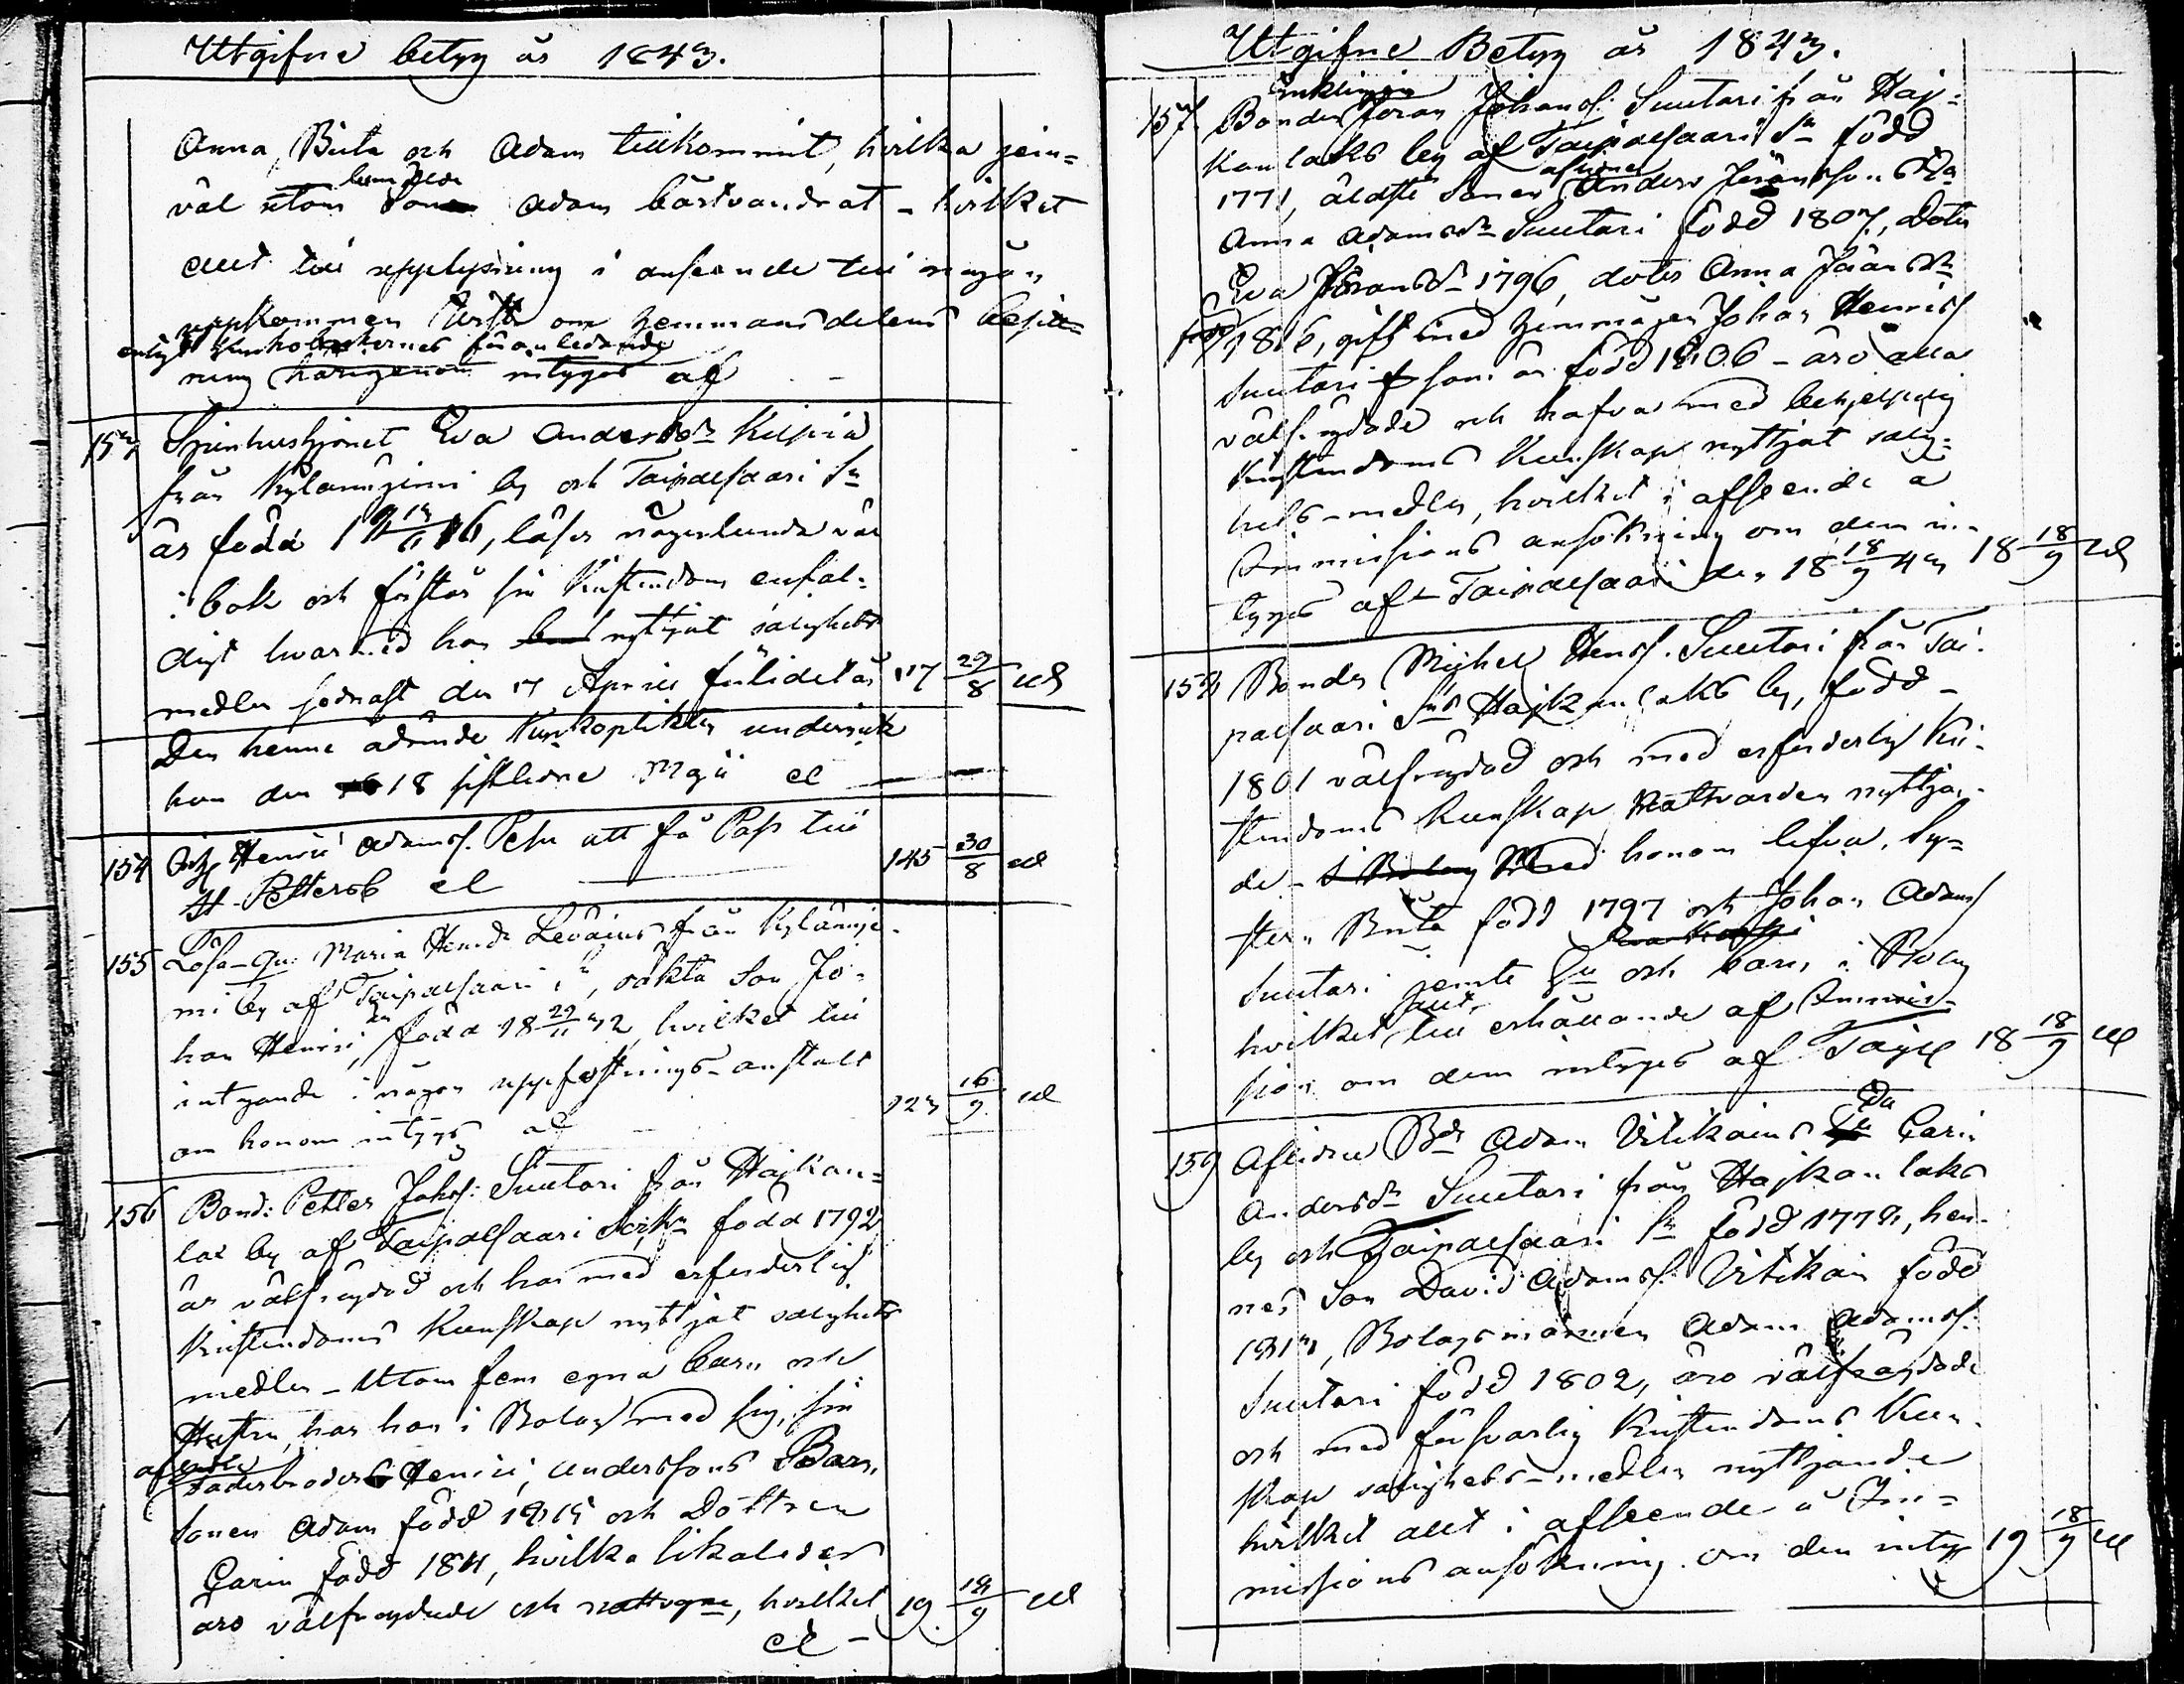 Utgifne betyg år 1843.
Anna, Brita och Adam tillkommit, hvilka jem=
väl utom bemälde Adam bårtvandrat - hvilket
allt till upplysning i anseende till någon
uppkommen tvist om hemmansdelens besitt=
enligt
ning härigenom intygas af
153 Spinhushjonet Eva Andersdr Kilpiä
från Kylänniemi by och Taipalsaari Sn
är född 18 16, läser någorlunda väl
i bok och förstår sin Kristendom enfal-
digt hvarmed hon nyttjat salighets
medlen sednast den 17 April sistlidet år 117 29/8
Den henne ådömde Kyrkoplikten undergick
hon den 18 sistledne Maji
154 Henric Adamss. Pesu att få Pass till 145 30/8
St. Pettersb
155 Lösa-Qu: Maria Henrdr Leväinen från Kylännie-
mi by af Taipalsaari Sn, oäkta Son Jo-
han Henric, född 18 29/11 42, hvilket till
intagande i någon uppfostrings-anstalt 123 16/9
om honom intygas
156 Bond: Petter Johss: Suutari från Hajkan=
lax by af Taipalsaari Sokn född 1792
är välfrägdad och har med erforderlig
Kristendoms Kunskap nyttjat salighets
medlen - Utom fem egna barn och
Hustru, har han i Bolag med sig, sin
aflidne
Faderbroders Henric Anderssons Barn,
Sonen Adam född 1815 och Dottren
Carin född 1811, hvilka likaledes
äro välfrägdade och, hvilket 19 18/9
Utgifne Betyg år 1843.
Enklingen
157 Bonden Jöran Johanss: Suutari från Haj=
kanlaks by af Taipalsaari Sn född
1771, äldste sonen aflidne Anders Jöranssons Ea
Anna Adamsdr Suutari född 1807, doter
Eva Jöransdr 1796, doter Anna Jöransdr
1816, gift med hemmågen Johan Henrics
Suutari som är född 1806 - äro alla
välfrägdade och hafva med behjelplig
Kristendoms Kunskap nyttjat salig-
hets-medlen, hvilket i afseende å
Immissions ansökning om dem in-
tygas af Taipalsaari den 18 18/9 43 18 18/9
158 Bonden Michel Henrs. Suutari från Tai-
palsaari Sns Hajkanlaks by, född
1801 välfrägdad och med erforderlig Kri-
stendoms Kunskap Nattvarden nyttjan-
de - Med honom lefva, Sy-
stern Brita född 1797 och Johan Adams
Suutari jemte Hu och barn, i Bolag
hvilket allt till erhållande af Immis-
sion om dem intygas af Taipl 18 18/9
159 Aflidne Bdn Adam Vitikains Ea Carin
Andersdr Suutari från Hajkanlaks
by och Taipalsaari Sn född 1772, hen-
nes Son David Adamss. Vitikain född
1813, Bolagsmannen Adam Adamss.
Suutari född 1802, äro välfrägdade
och med försvarlig Kristendoms Kun-
skap salighets-medlen nyttjande
hvilket allt i afseende å Im=
missions ansökning om dem intyg 19 18/9